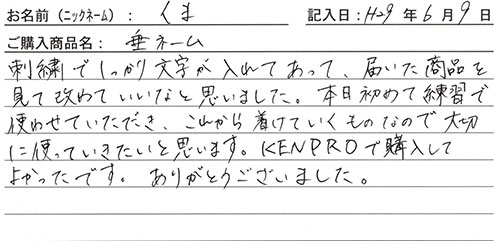 お名前（ニックネーム）： くま 記入日：H29年6月9日
ご購入商品名： 垂ネーム
刺繍でしっかり文字が入れてあって、届いた商品を
見て改めていいなと思いました。本日初めて練習で
使わせていただき、これから着けていくものなので大切
に使っていきたいと思います。KENPROで購入して
よかったです。ありがとうございました。